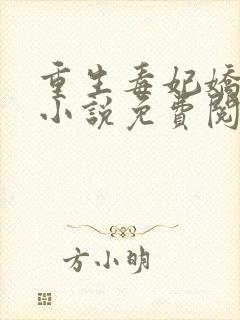 重生毒妃嬌
小說免費閱
方小明